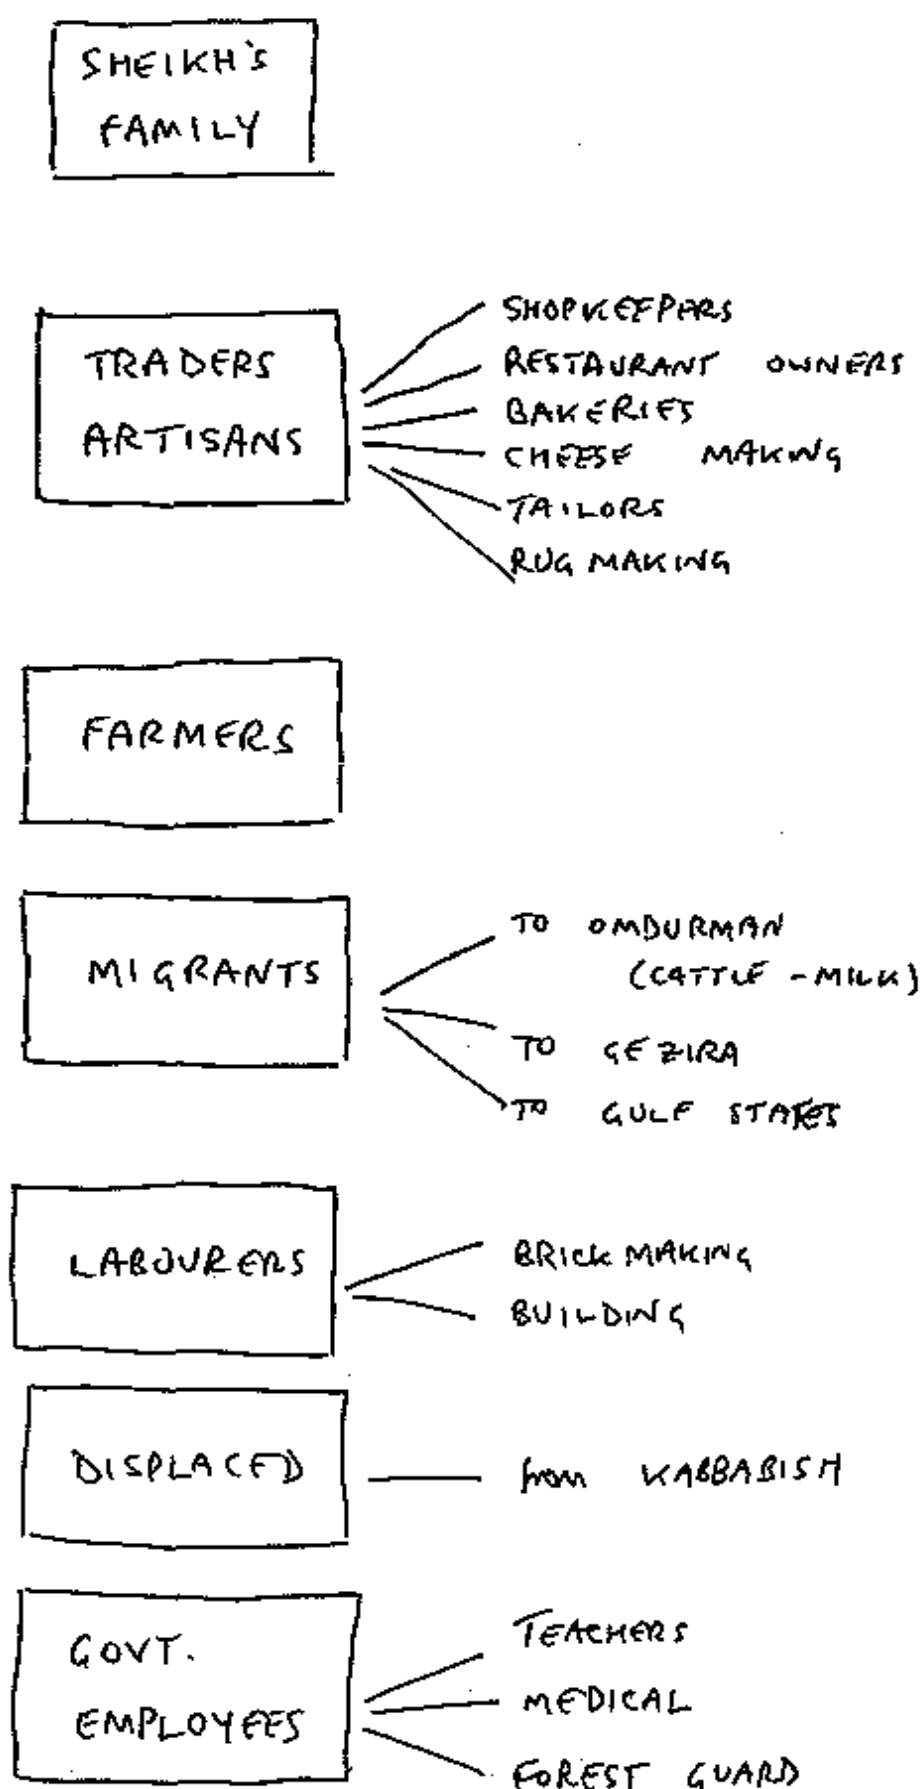 SHEIKH'S
FAMILY
TRADERS
ARTISANS
SHOPKEEPERS
RESTAURANT OWNERS
BAKERIES
CHEESE MAKING
TAILORS
RUG MAKING
FARMERS
MIGRANTS
TO OMDURMAN
(CATTLE - MILK)
TO GEZIRA
TO GULF STATES
LABOURERS
BRICK MAKING
BUILDING
DISPLACED
from KABBABISH
GOVT.
EMPLOYEES
TEACHERS
MEDICAL
FOREST GUARD